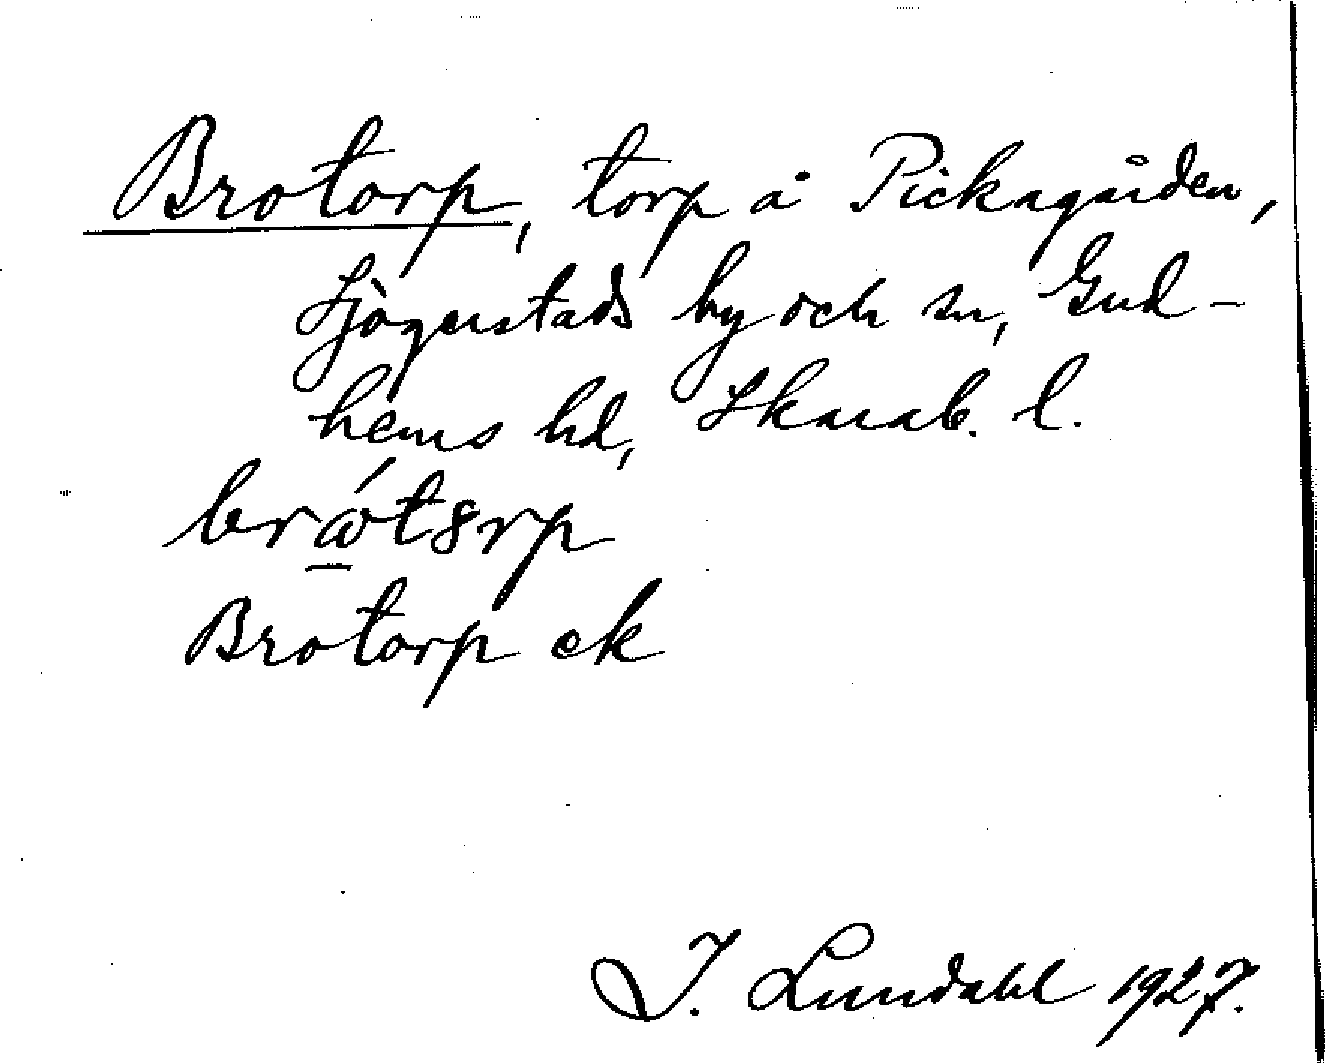 Brotorp, torp å Pickagården,
Sjogerstads by och sn, Gud-
hems hd, Skarab. l.
brώt8rp
Brotorp ek
I. Lundahl 1927.